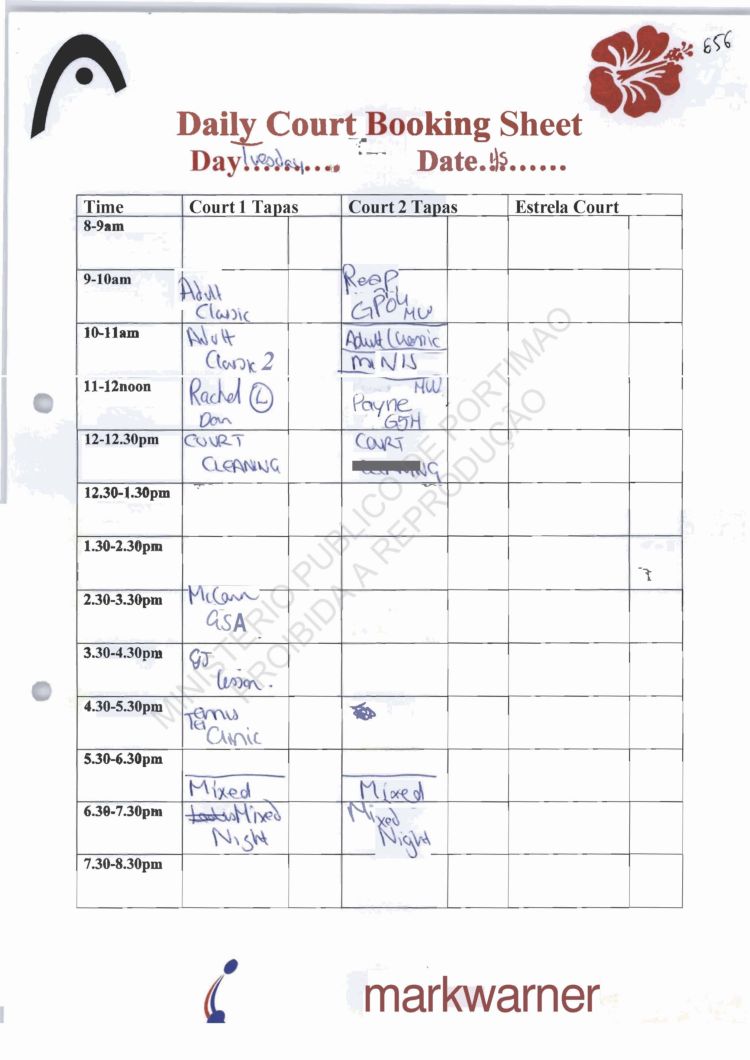 656
Daily Court Booking Sheet
Day Tuesday......... Date. 1/5......
Time Court 1 Tapas Court 2 Tapas Estrela Court
8-9am
9-10am Adult Classic Reap GPO4 MW
10-11am Adult Classic 2 Adult Classic MINIS
11-12noon Rachel L Dan MW Payne G5H
12-12.30pm COURT CLEANING COURT NG
12.30-1.30pm
1.30-2.30pm
2.30-3.30pm McCann G5A
3.30-4.30pm GJ Lesson.
4.30-5.30pm Tennis Clinic
5.30-6.30pm Mixed Mixed
6.30-7.30pm Mixed Night Mixed Night
7.30-8.30pm
MINISTERIO PUBLICO DE PORTIMAO
PROIBIDA A REPRODUÇÃO
markwarner